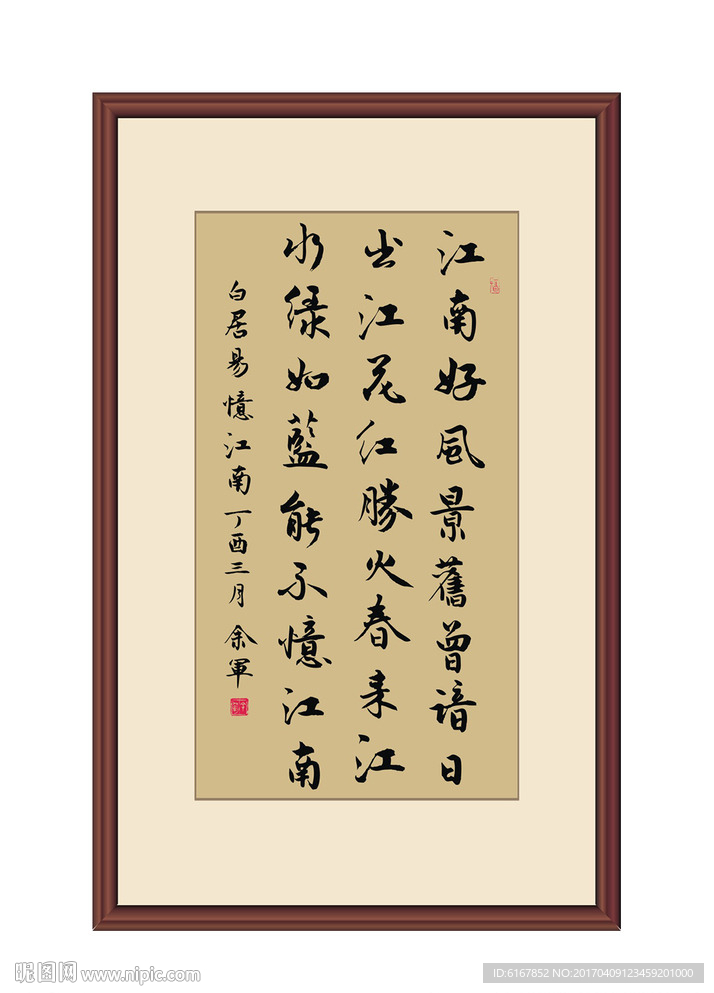 江南好風景舊曾諳日
出江花红勝火春来江
水绿如藍能不憶江南
白居易憶江南丁酉三月余軍
昵图网 www.nipic.com
ID:6167852 NO:20170409123459201000